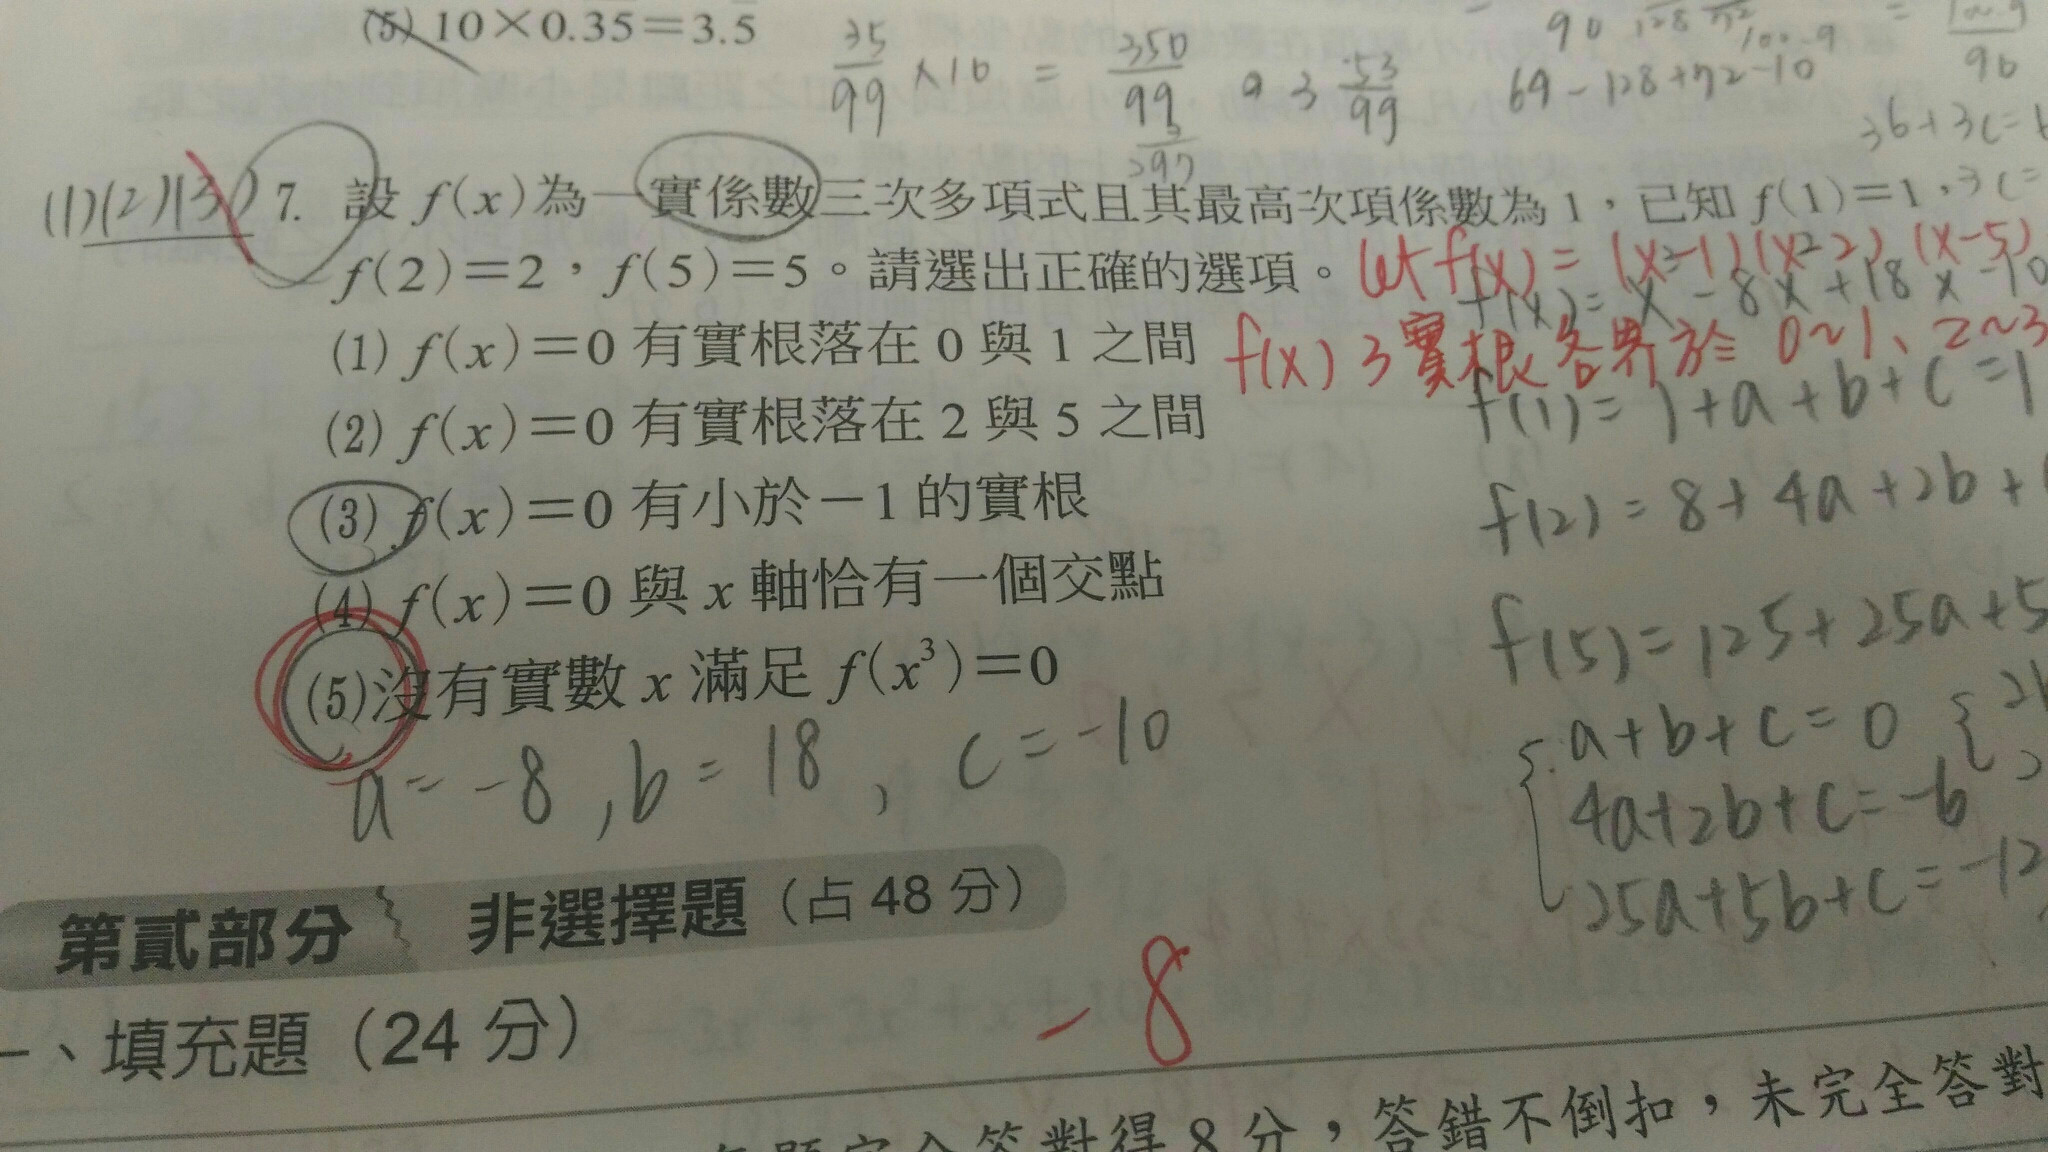 (5) 10×0.35=3.5
35/99 ×10 = 350/99
3 53/99
64-128+72-10
3b+3c=
(1)(2)(3) 7. 設 f(x)為一實係數三次多項式且其最高次項係數為 1,已知 f(1)=1,
3c=
f(2)=2,f(5)=5。請選出正確的選項。
let f(x) = (x-1)(x-2)(x-5)
f(x)= x³-8x²+18x-10
(1) f(x)=0 有實根落在 0 與 1 之間
f(x) 3實根各界於 0~1、2~3
(2) f(x)=0 有實根落在 2 與 5 之間
f(1)= 1+a+b+c=1
(3) f(x)=0 有小於-1 的實根
f(2)=8+4a+2b+
(4) f(x)=0 與 x 軸恰有一個交點
f(5)=125+25a+5
(5)沒有實數 x 滿足 f(x³)=0
a=-8, b=18, c=-10
a+b+c=0
4a+2b+c=-6
25a+5b+c=-12
第貳部分 非選擇題(占 48 分)
-8
一、填充題(24 分)
答對得 8 分,答錯不倒扣,未完全答對